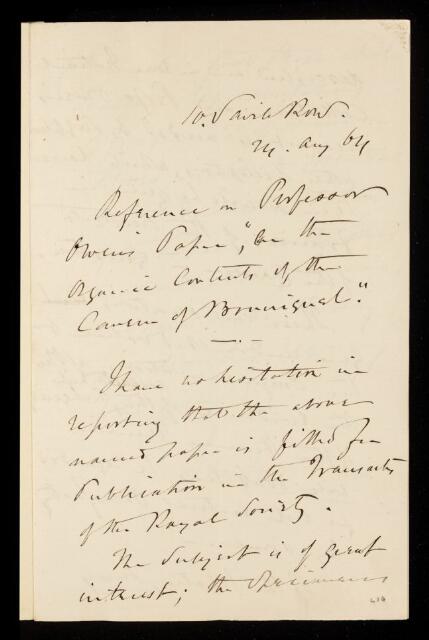 10. Savile Row.
24. Aug 64
Reference on Professor
Owen's Paper, "On the
Organic Contents of the
Cavern of Bruniquel."
I have no hesitation in
reporting that the above
named paper is fitted for
Publication in the Transacts
of the Royal Society.
The Subject is of great
interest; the Specimens